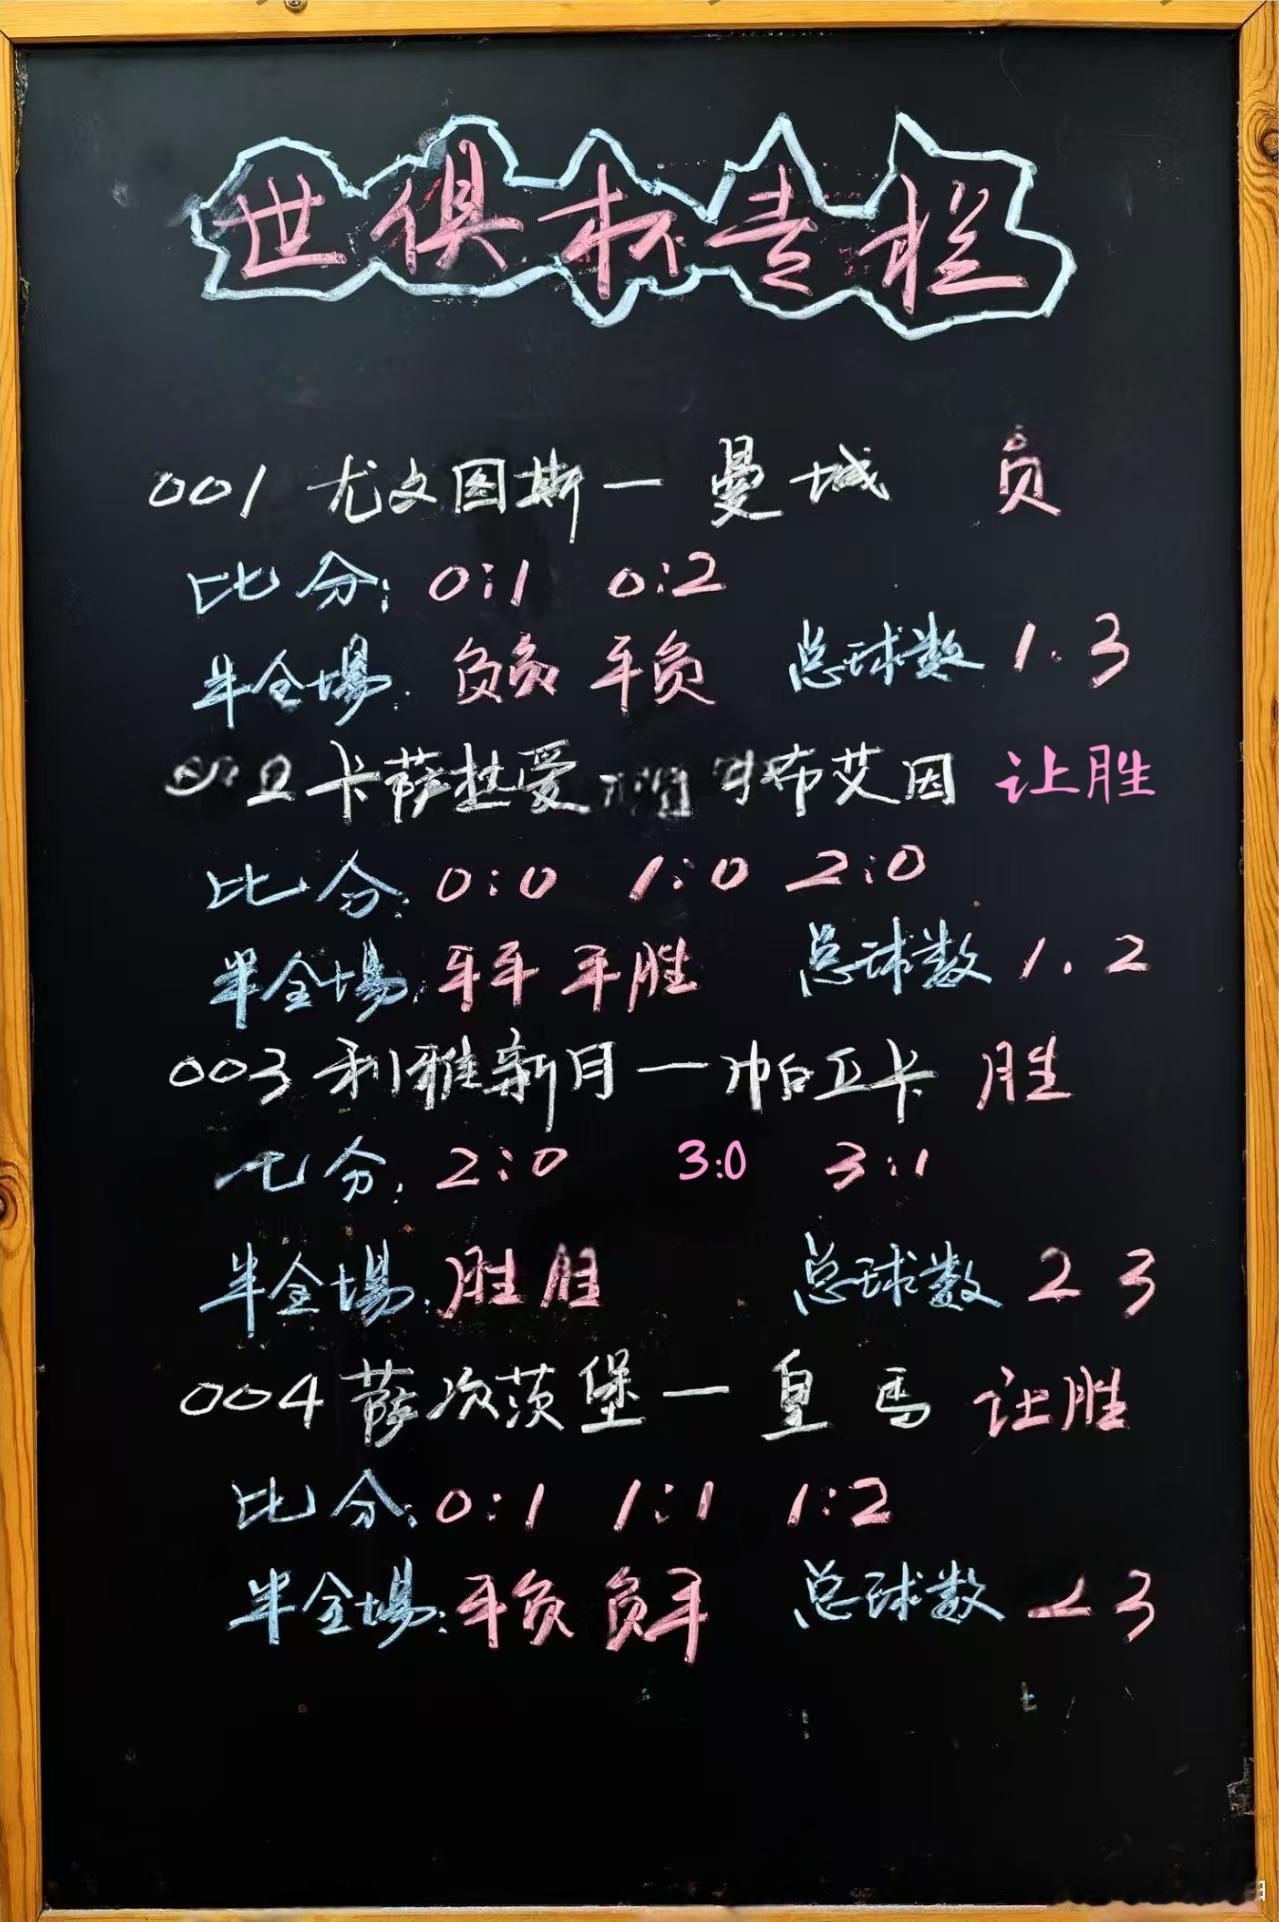 世俱杯专栏
001 尤文图斯一曼城 负
比分: 0:1 0:2
半全場: 负负 平负 总球数 1.3
2 卡萨 布艾因 让胜
比分: 0:0 1:0 2:0
半全場: 平平 平胜 总球数 1.2
003 利雅新月一帕丘卡 胜
分: 2:0 3:0 3:1
半全場: 胜胜 总球数 2 3
004 萨次茨堡一皇马 让胜
比分: 0:1 1:1 1:2
半全場: 平负 负平 总球数 3